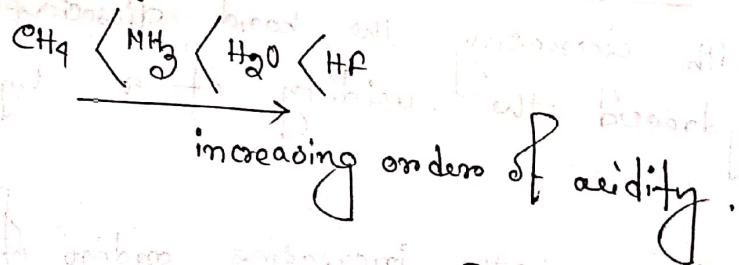 CH4 < NH3 < H2O < HF
increasing orders of acidity.